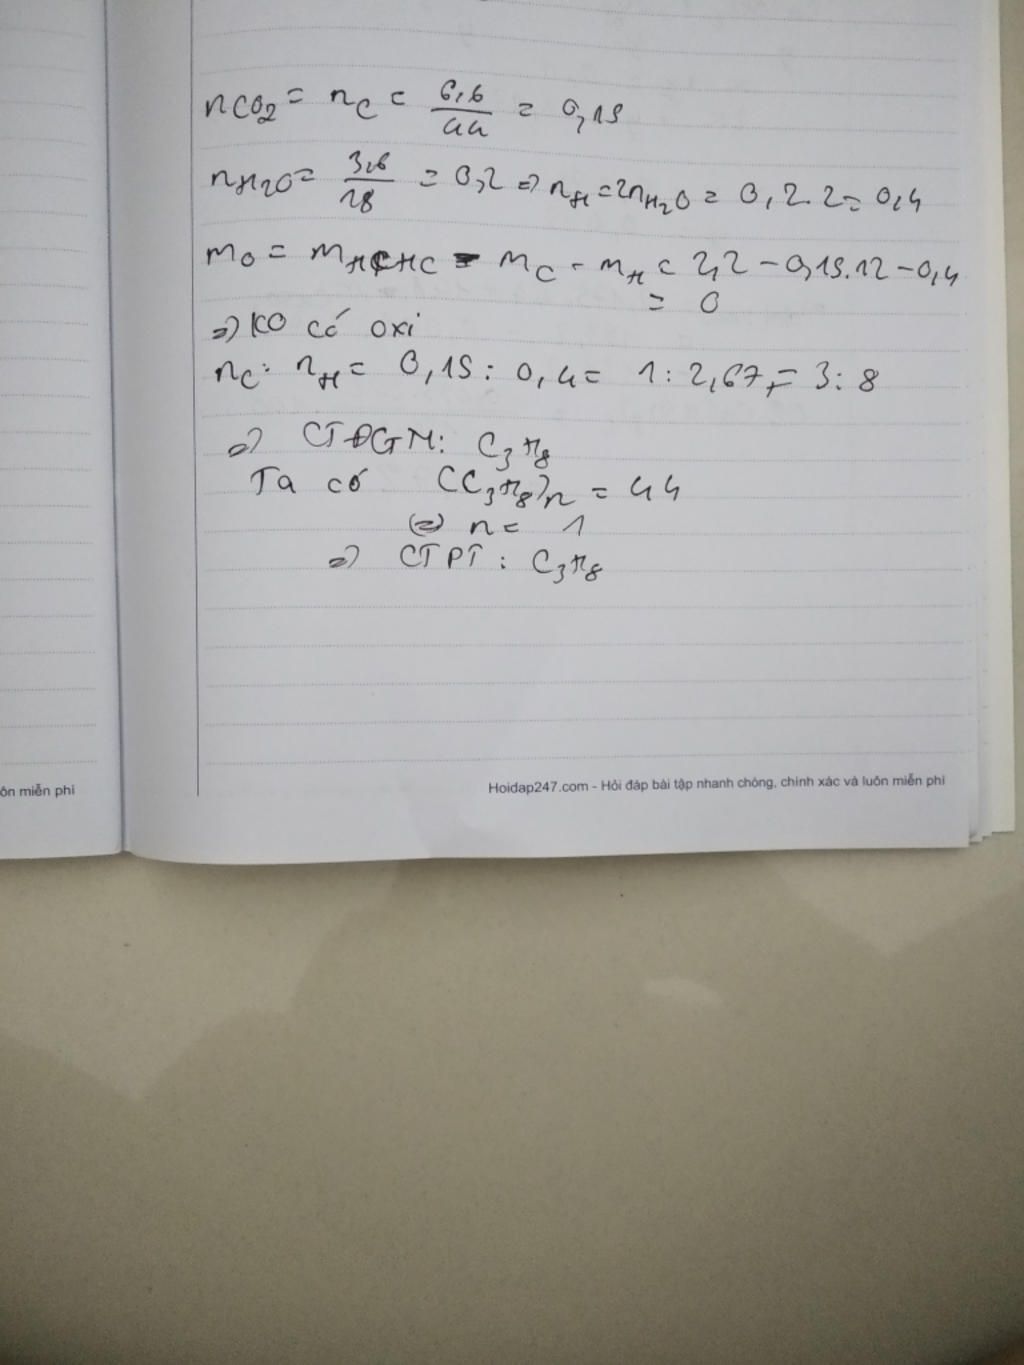 nCO2 = nC = 6,6/44 = 0,15
nH2O = 3,6/18 = 0,2 => nH = 2nH2O = 0,2.2 = 0,4
mO = mHCHC - mC - mH = 2,2 - 0,15.12 - 0,4
= 0
=> KO có oxi
nC : nH = 0,15 : 0,4 = 1 : 2,67 = 3 : 8
=> CTĐGN: C3H8
Ta có (C3H8)n = 44
<=> n = 1
=> CTPT : C3H8
ôn miễn phí
Hoidap247.com - Hỏi đáp bài tập nhanh chóng, chính xác và luôn miễn phí